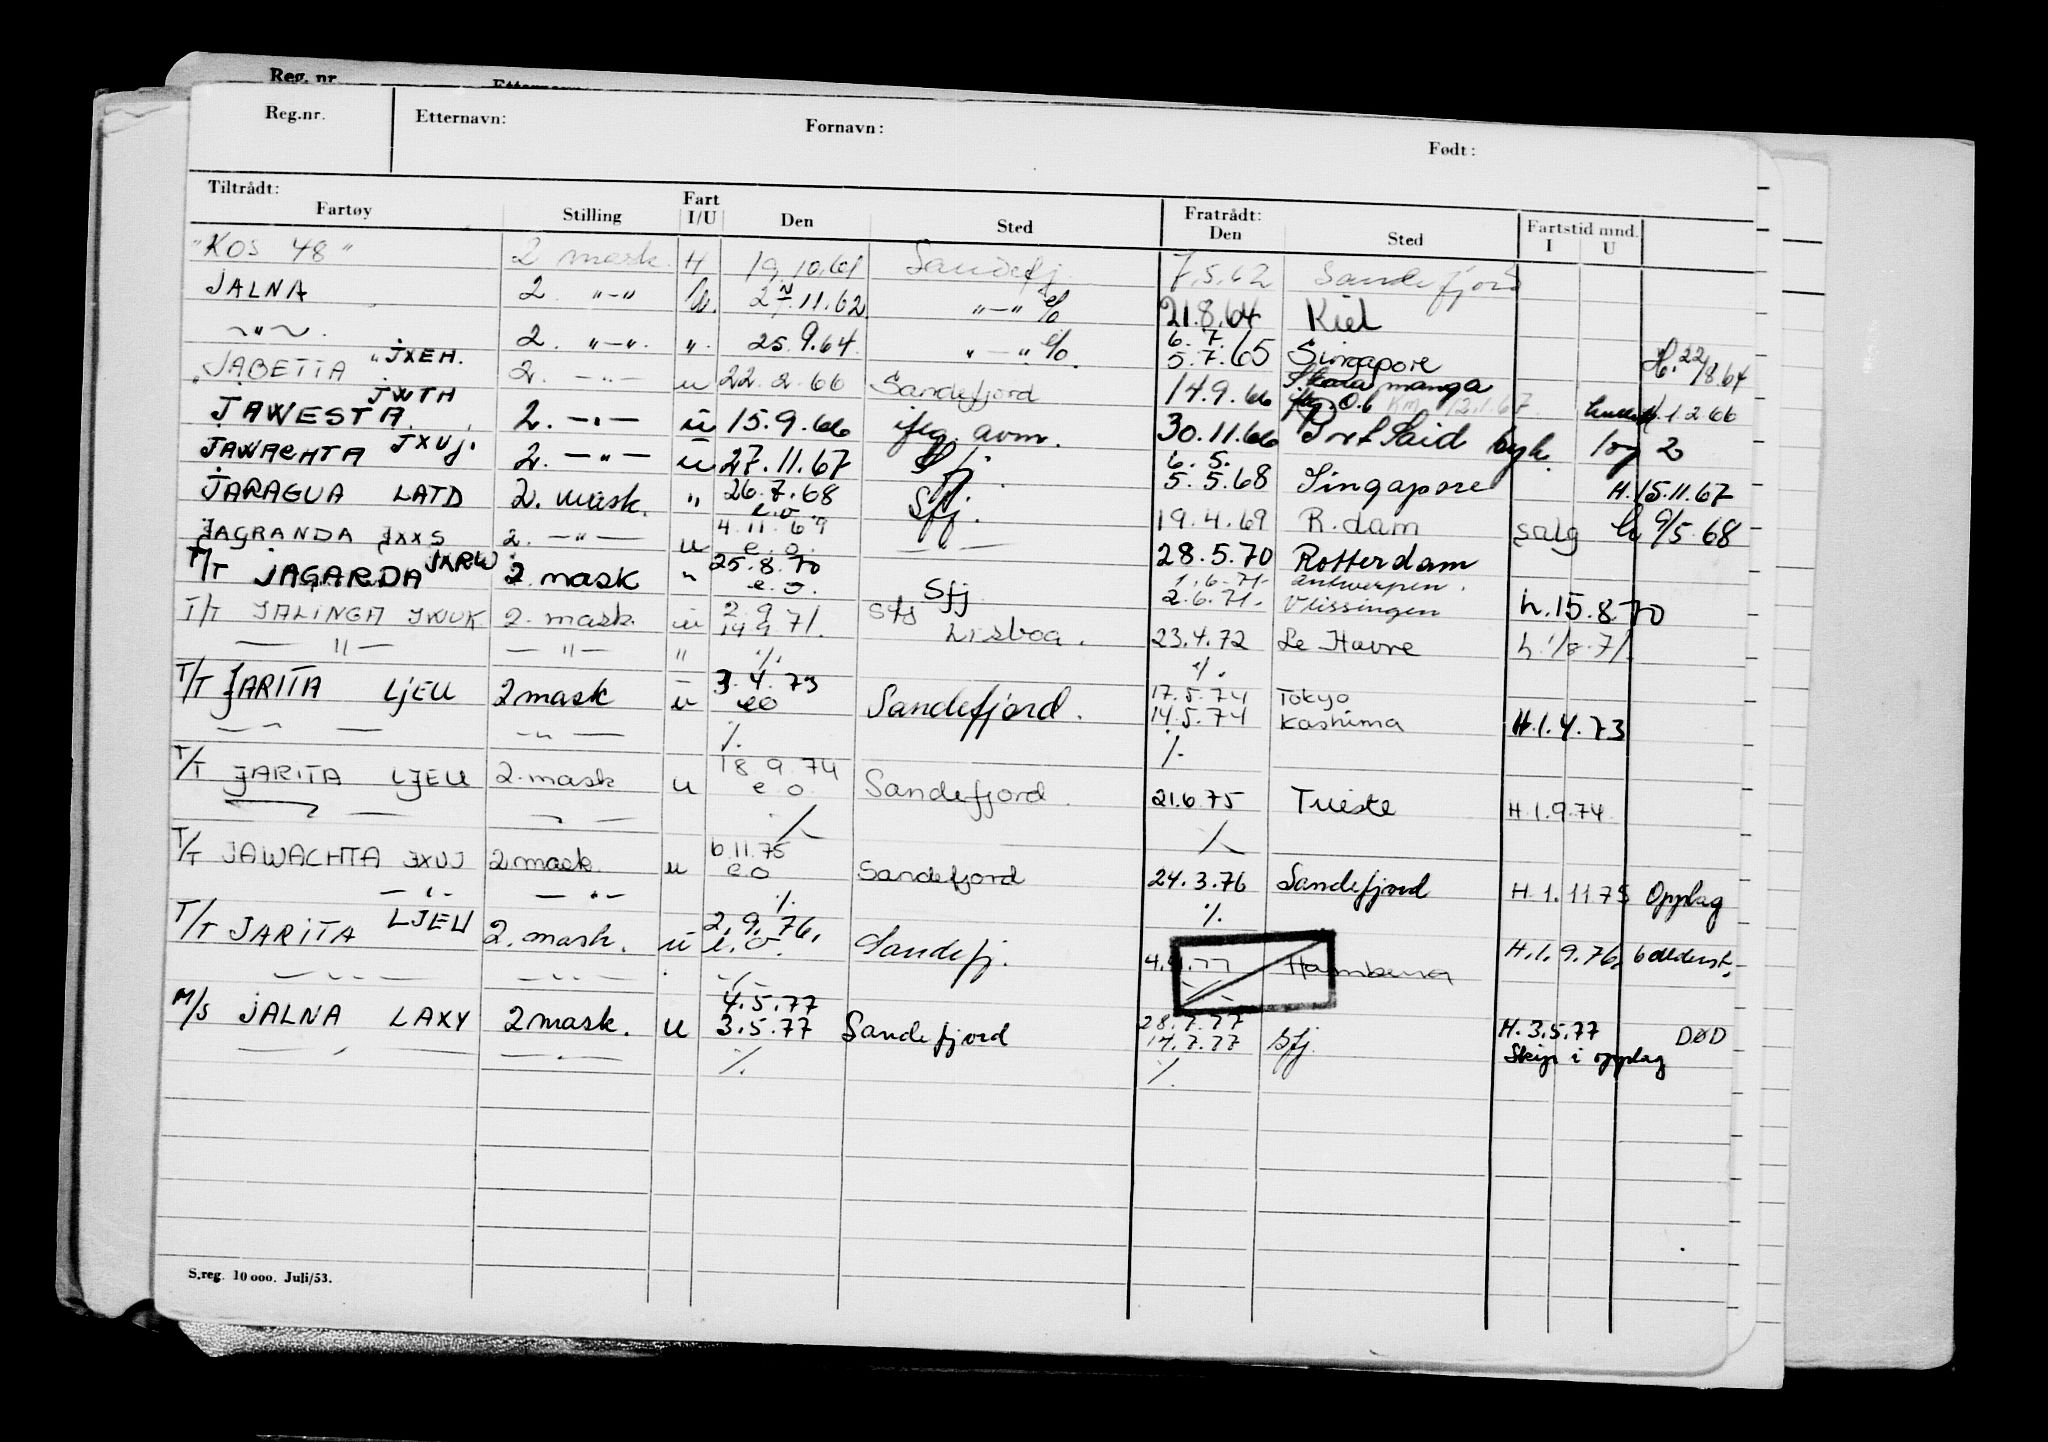 Reg. nr
Reg.nr. Etternavn: Fornavn: Født:
Tiltrådt: Fratrådt: Fartstid mnd.
Fartøy Stilling Fart I/U Den Sted Den Sted I U
"KOS 48" 2 mask. H 19.10.61 Sandefj. 7.5.62 Sandefjord
JALNA 2 "-" U. 2 .11.62 "-" 21.8.64 Kiel
~"~. 2. "-". ". 25.9.64 "-" 6.7. 5.7.65 Singapore H. 22/8.64
"JABETTA" JXEH. 2. -"- u 22.2.66 Sandefjord 14.9.66 manga 1.2.66
JAWESTA JWTH 2. -"- u 15.9.66 avm. 30.11.66 Port Said
JAWACHTA JXUJ. 2. -"- u 27.11.67 Sfj. 6.5. 5.5.68 Singapore H. 15.11.67
JARAGUA LATD 2. mask. " 26.7.68 e.o. Sfj. 19.4.69 R.dam salg h 9/5.68
JAGRANDA JXXS 2. -"- u 4.11.69 e.o. -"- 28.5.70 Rotterdam
T/T JAGARDA JXRW 2. mask " 25.8.70 e.o. Sfj 1.6.71. antwerpen. 2.6.71. Vlissingen h.15.8.70
T/T JALINGA JWUK 2. mask u 2.9 14.9 71. Sfj Lisboa. 23.4.72 Le Havre h. 1/8.71.
-"- -"- " ·/. ·/.
T/T JARITA LJEU 2 mask u 3.4.73 eo Sandefjord. 17.5.74 Tokyo 14.5.74 Kashima H.1.4.73
-"- -"- ·/. ·/.
T/T JARITA LJEU 2. mask u 18.9.74 e.o. Sandefjord. 21.6.75 Trieste H.1.9.74
-"- -"- ·/. ·/.
T/T JAWACHTA JXUJ 2 mask u 6.11.75 eo Sandefjord 24.3.76 Sandefjord H.1.11.75 Opplag
-"- -"- ·/. ·/.
T/T JARITA LJEU 2. mask. u 2.9.76. e.o. Sandefj. 4. .77 Hamburg H.1.9.76
-"- -"- ·/.
M/S JALNA LAXY 2 mask. u 4.5.77 3.5.77 Sandefjord 28.7.77 14.7.77 Sfj. H.3.5.77 Skip i opplag DØD
-"- -"- ·/. ·/.
S.reg. 10 000. Juli/53.